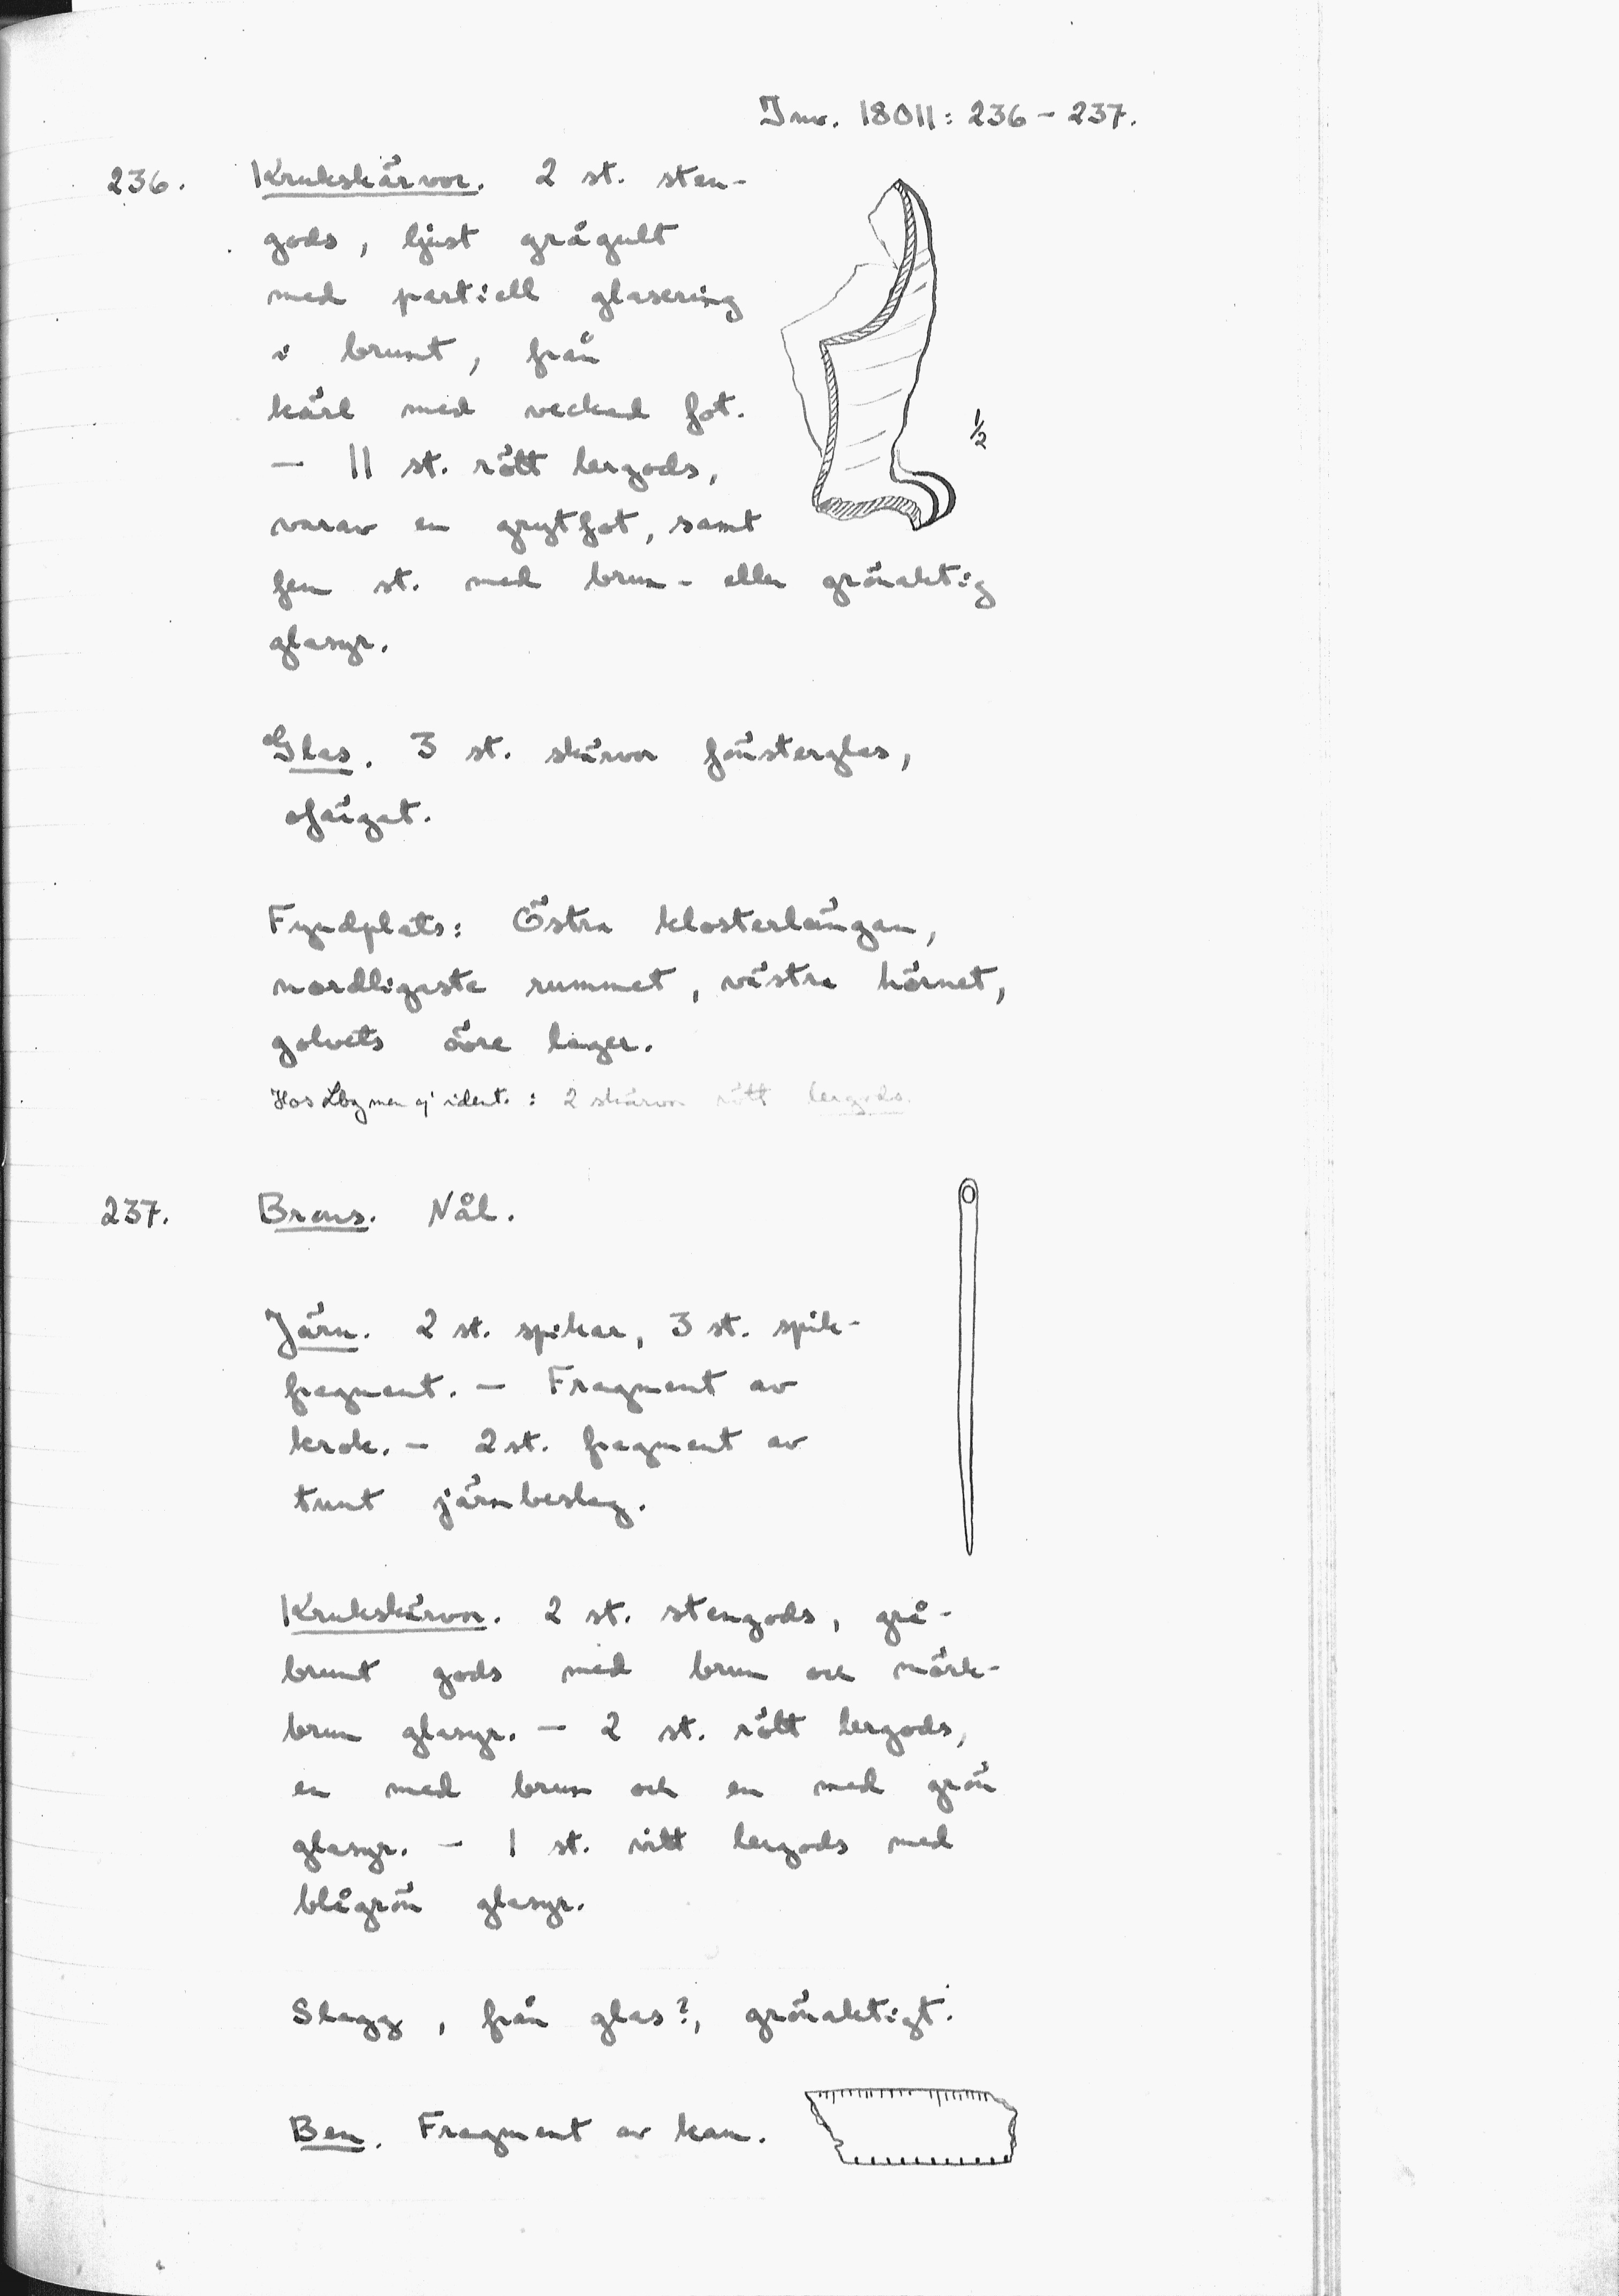 Inv. 18011: 236 - 237.
236. Krukskärvor. 2 st. sten-
gods, ljust grågult
med partiell glasering
i brunt, från
kärl med veckad fot.
— 11 st. rött lergods,
varav en grytfot, samt
fem st. med brun- eller grönaktig
glasyr.
1/2
Glas. 3 st. skärvor fönsterglas,
ofärgat.
Fyndplats: Östra klosterlängan,
nordligaste rummet, västra hörnet,
golvets övre lager.
Hos Lbg men ej ident. : 2 skärvor rött lergods.
237. Brons. Nål.
Järn. 2 st. spikar, 3 st. spik-
fragment. — Fragment av
krok. — 2 st. fragment av
tunt järnbeslag.
Krukskärvor. 2 st. stengods, grå-
brunt gods med brun och mörk-
brun glasyr. — 2 st. rött lergods,
en med brun och en med grön
glasyr. — 1 st. vitt lergods med
blågrön glasyr.
Slagg, från glas?, grönaktigt.
Ben. Fragment av kam.